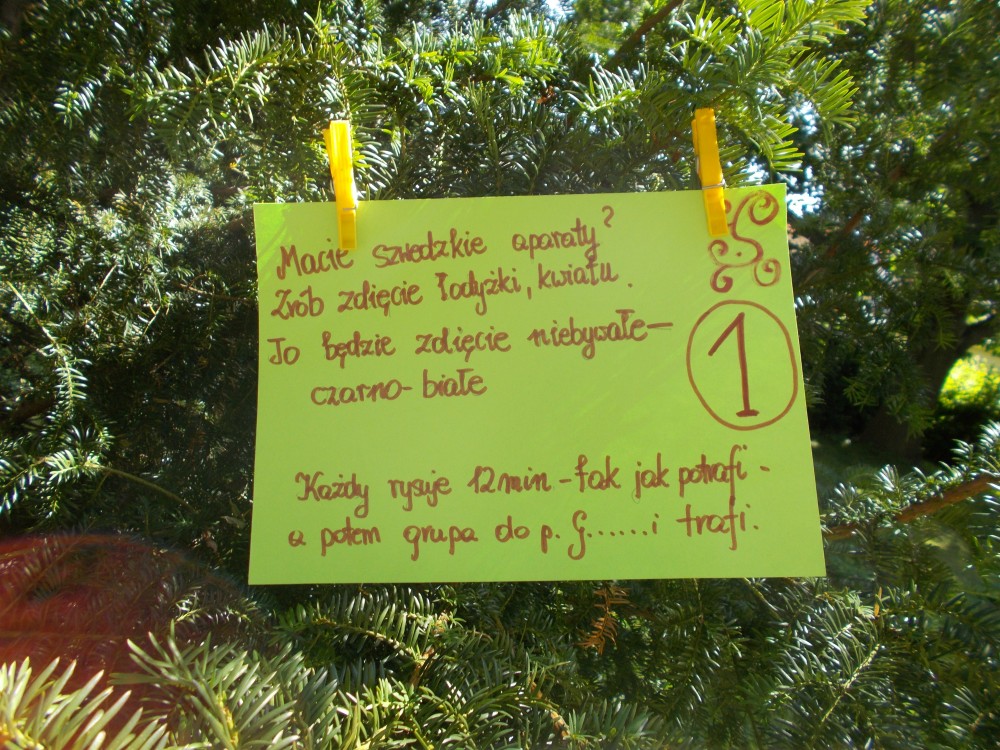 Macie szwedzkie aparaty?
Zrób zdięcie łodyżki, kwiatu.
To będzie zdięcie niebywałe-
czarno-białe
1
Każdy rysuje 12min-tak jak potrafi-
a potem grupa do p. G......i trafi.